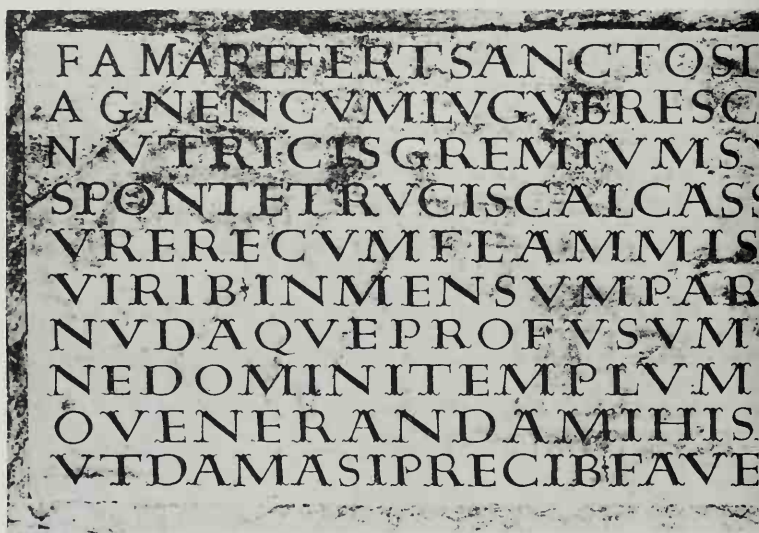 FAMAREFERTSANCTOSD
AGNENCVMLVGVBRESCA
NVTRICISGREMIVMSV
SPONTETRVCISCALCASS
VRERECVMFLAMMIS
VIRIB·INMENSVMPAR
NVDAQVEPROFVSVM
NEDOMINITEMPLVM
OVENERANDAMIHISA
VTDAMASIPRECIB·FAVE